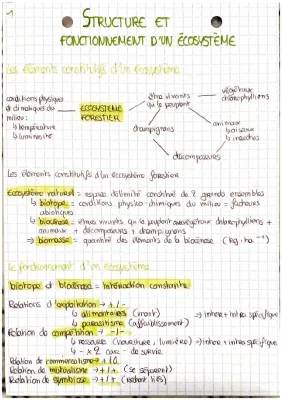 1
STRUCTURE ET
FONCTIONNEMENT D'UN ÉCOSYSTÈME
Les éléments constitutifs d'un écosystème
conditions physiques
et climatiques du
milieu :
↳ température
↳ luminosité
ECOSYSTEME
FORESTIER
êtres vivants
qui le peuplent
végétaux
chlorophylliens
animaux
↳ oiseaux
↳ insectes
champignons
décomposeurs
Les éléments constitutifs d'un écosystème forestier
Ecosystème naturel = espace délimité constitué de 2 grands ensembles
↳ biotope = conditions physico-chimiques du milieu = facteurs
abiotiques
↳ biocénose = êtres vivants qui le peuplent végétaux chlorophylliens +
animaux + décomposeurs + champignons
⇒ biomasse = quantité des éléments de la biocénose (kg.ha⁻¹)
Le fonctionnement d'un écosystème
biotope et biocénose = interaction constante
Relations d'exploitation → +/-
↳ alimentaires (mort)
↳ parasitisme (affaiblissement)
⇒ inter + intra spécifique
Relation de compétition → -/-
↳ ressource (nourriture, lumière) ⇒ inter + intra spécifique
de survie
Relation de commensalisme → +/0
Relation de mutualisme → +/+ (se séparent)
Relation de symbiose → +/+ (restent liés)